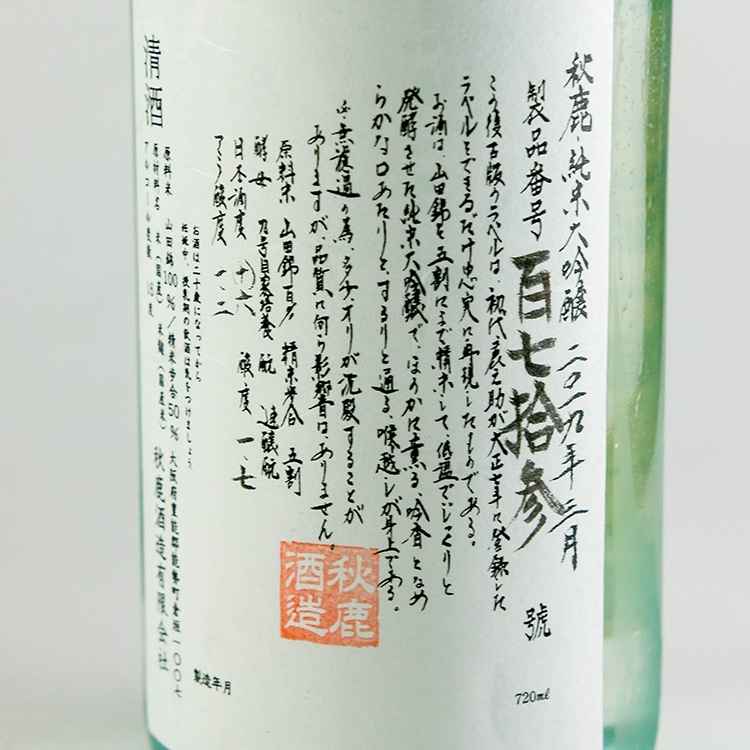 秋鹿・純米大吟醸 二〇一九年二月
製品番号 百七拾参 號
この復古版のラベルは、初代鹿之助が大正七年に登録した
ラベルをできるだけ忠実に再現したものである。
お酒は、山田錦を五割にまで精米して、低温でじっくりと
発酵させた純米大吟醸で、ほのかに薫る、吟香となめ
らかな口あたりと、するりと通る、喉越しが身上である。
無濾過の為、オリが沈殿することが
ありますが、品質に何ら影響は、ありません。
原料米 山田錦百% 精米歩合 五割
酵母 七号自家培養 酛 速醸酛
日本酒度 十六 酸度 一・七
アミノ酸度 一・二
秋鹿
酒造
お酒は二十歳になってから
妊娠中、授乳期の飲酒は気をつけましょう。
清酒
原料米 山田錦100%/精米歩合50% 大阪府豊能郡能勢町倉垣一〇〇七
原材料名 米(国産)米麹(国産米) 秋鹿酒造有限会社
アルコール度数 18度
製造年月
720ml